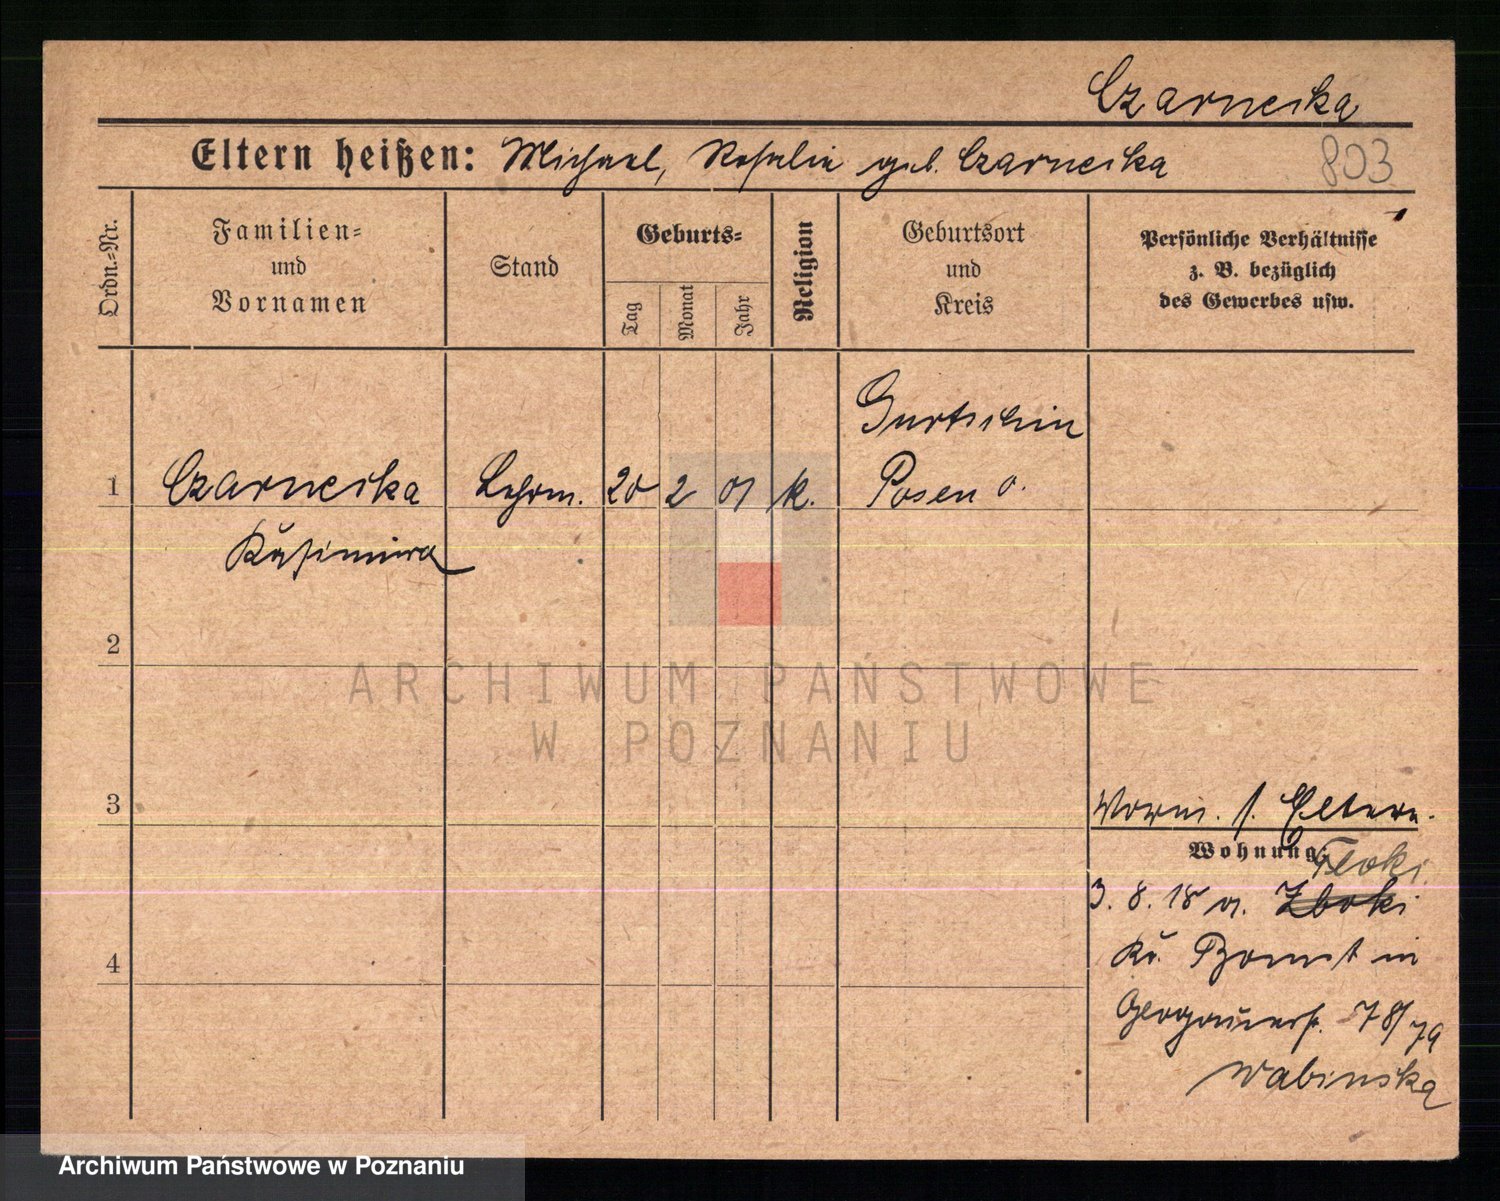 Czarnecka
Eltern heißen: Michael, Rosalie geb. Czarnecka
803
Ordn.-Nr.
Familien- und Vornamen
Stand
Geburts-
Tag
Monat
Jahr
Religion
Geburtsort und Kreis
Persönliche Verhältnisse
z. B. bezüglich
des Gewerbes usw.
Gurtschin
1 Czarnecka Lehrm. 20 2 01 k. Posen O.
Kasimira
2
ARCHIWUM PAŃSTWOWE
W POZNANIU
3
Vorm. s. Eltern.
Wohnung:
3. 8. 18 v. Zboki
4
Kr. Bomst in
Glogauerstr. 78/79
Wabinska
Archiwum Państwowe w Poznaniu